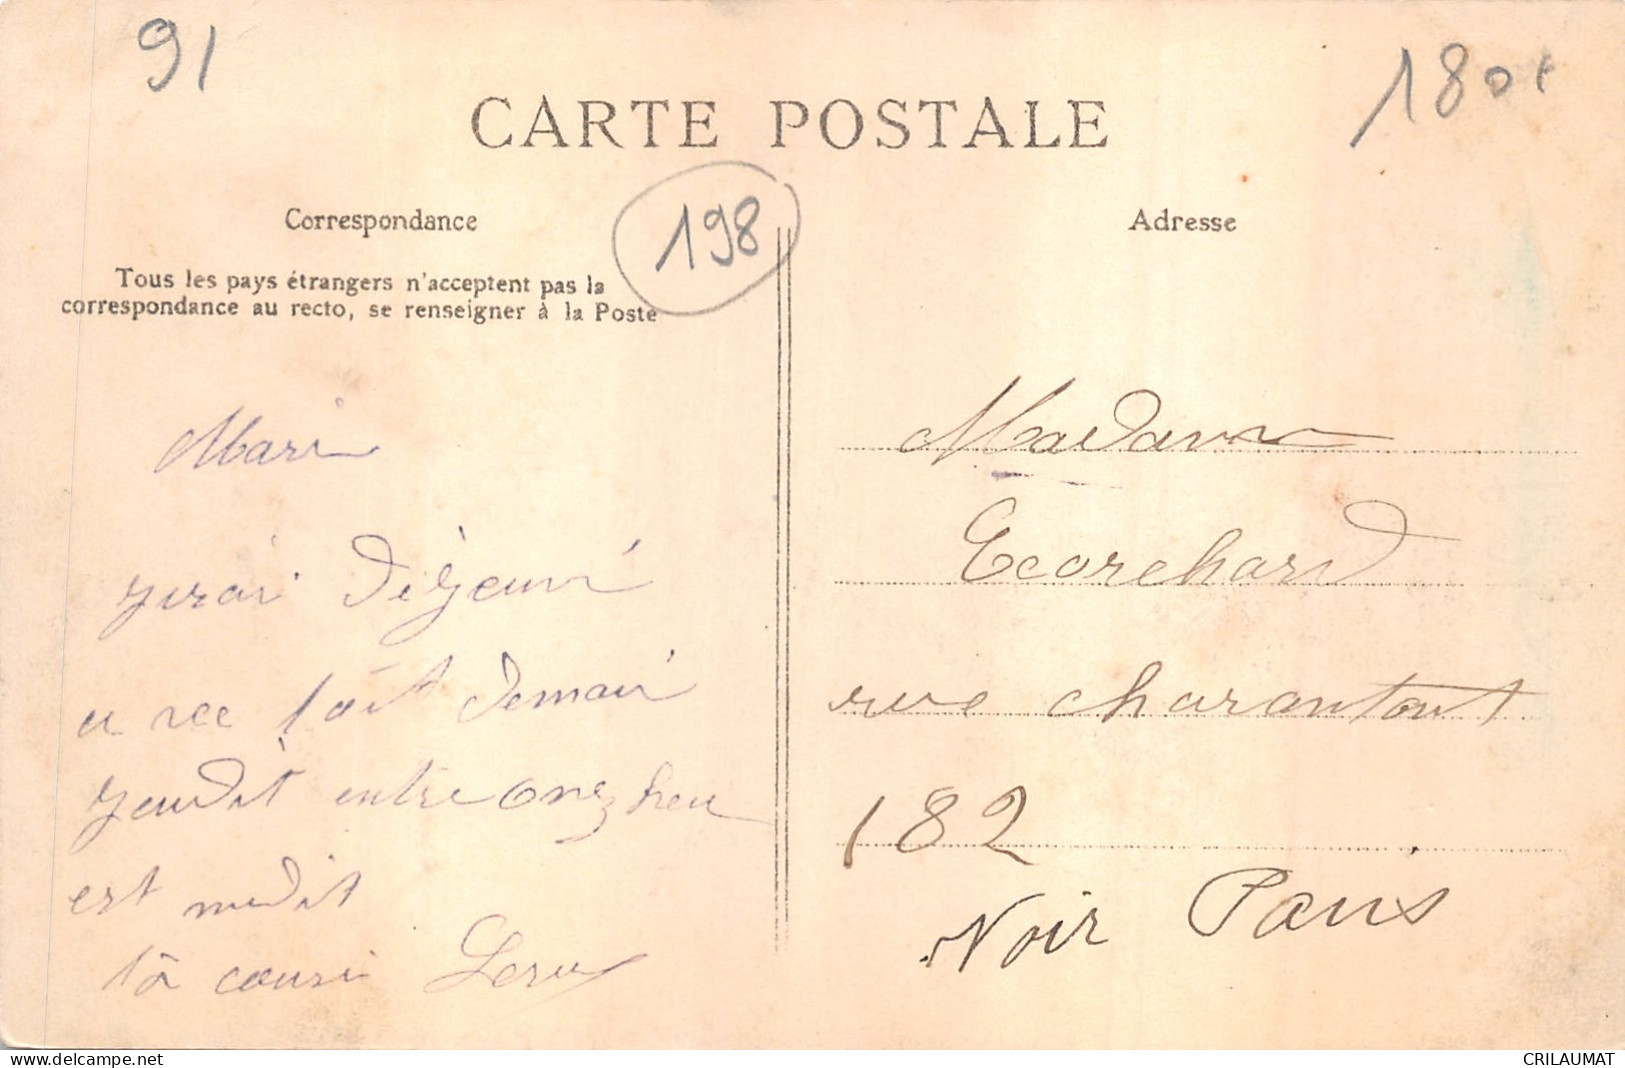 91
1801
CARTE POSTALE
198
Correspondance
Tous les pays étrangers n'acceptent pas la
correspondance au recto, se renseigner à la Poste
Mari
yirai déyeuné
avec toit demain
yeudit entre onez heu
est midit
ta cousi Leru
Adresse
Madame
Ecorchard
rue charantont
182
Noir Paris
CRILAUMAT